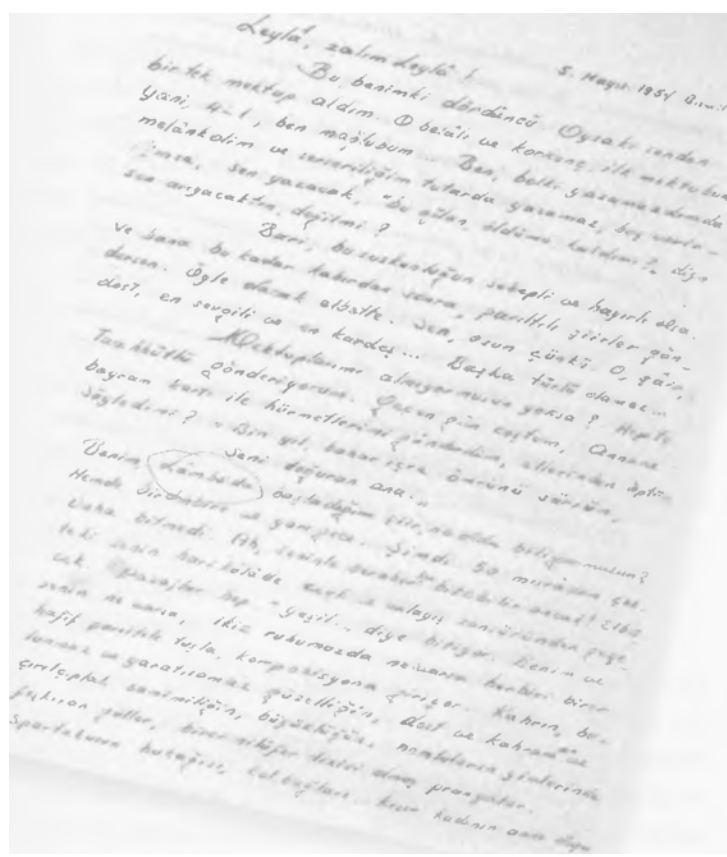 Leylâ, zalım Leylâ!
5. Mayıs 1954
Bu, benimki dördüncü. Oysaki senden
bir tek mektup aldım. O belâlı ve korkunç ilk mektubun
Yâni, 4-1, ben mağlubum... Ben, belki yazamazdım da
melânkolim ve serseriliğim tutar da yazamaz, boş
sen yazacak, "bu oğlan, öldümü kaldımı?" diye
sen arıyacaktın, değilmi?
Bari, bu suskunluğun sebepli ve hayırlı olsa.
Ve bana bu kadar kahırdan sonra, parıltılı şiirler gön-
dersen. Öyle olacak elbette. Sen, osun çünkü. O, şâir,
dost, en sevgili ve en kardeş... Başka türlü olamaz...
Mektuplarımı almıyormusun yoksa? Hepsi
Taahhütlü gönderiyorum. Geçen gün coştum, Annene
bayram kartı ile hürmetlerimi gönderdim, ellerinden öptüm
Söyledimi? "Bin yıl, ömrünü sürsün,
Seni doğuran ana.."
Benim, Lâmbada başladığım şiir, ne oldu biliyormusun?
Hemde ve yarı gece. Şimdi 50 mısraı
Daha bitmedi. Ah, seninle beraber
senin harikulâde ve anlayış sansüründen geçe-
cek. Pasajlar hep "Yeşil.." diye bitiyor. Benim ve
senin ne varsa, ikiz ruhumuzda ne varsa herbiri birer
hafif parıltılı tuşla, kompozisyona giriyor. Kahrın, bu-
ve yaratılamaz güzelliğin, dost ve kahraman
çırılçıplak samimiliğin, büyüklüğün, namluların
fışkıran güller, birer nilüfer dizisi olmuş prangalar.
Spartaküsün bukağısı, kadının